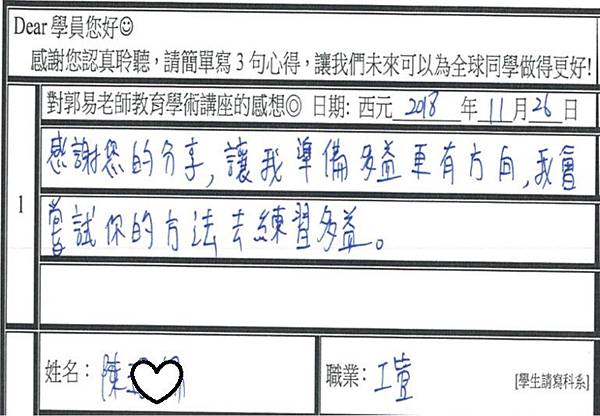 Dear 學員您好☺
感謝您認真聆聽，請簡單寫 3 句心得，讓我們未來可以為全球同學做得更好!
對郭易老師教育學術講座的感想◎ 日期: 西元 2018 年 11 月 26 日
1
感謝您的分享，讓我準備多益更有方向，我會
嘗試你的方法去練習多益。
姓名： 陳
職業： 工 [學生請寫科系]